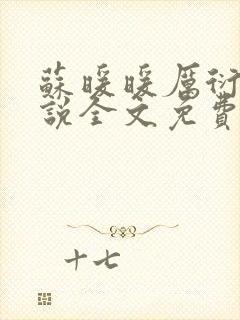 蘇暖暖厲衍
說全文免費
十七